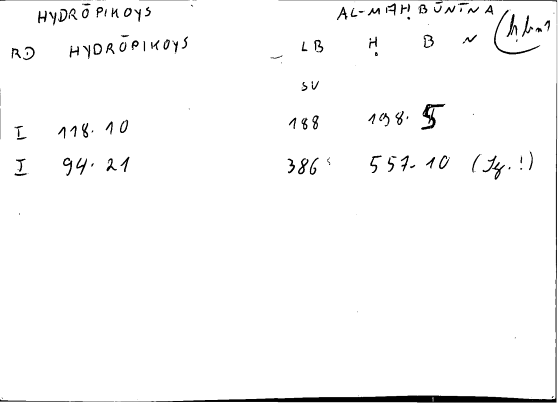 HYDRŌPIKOYS AL-MAḤBŪNĪNA
RD HYDRŌPIKOYS LB Ḥ B N
SU
I 118.10 188 198.5
I 94.21 386 557.10 (Iḍ.!)